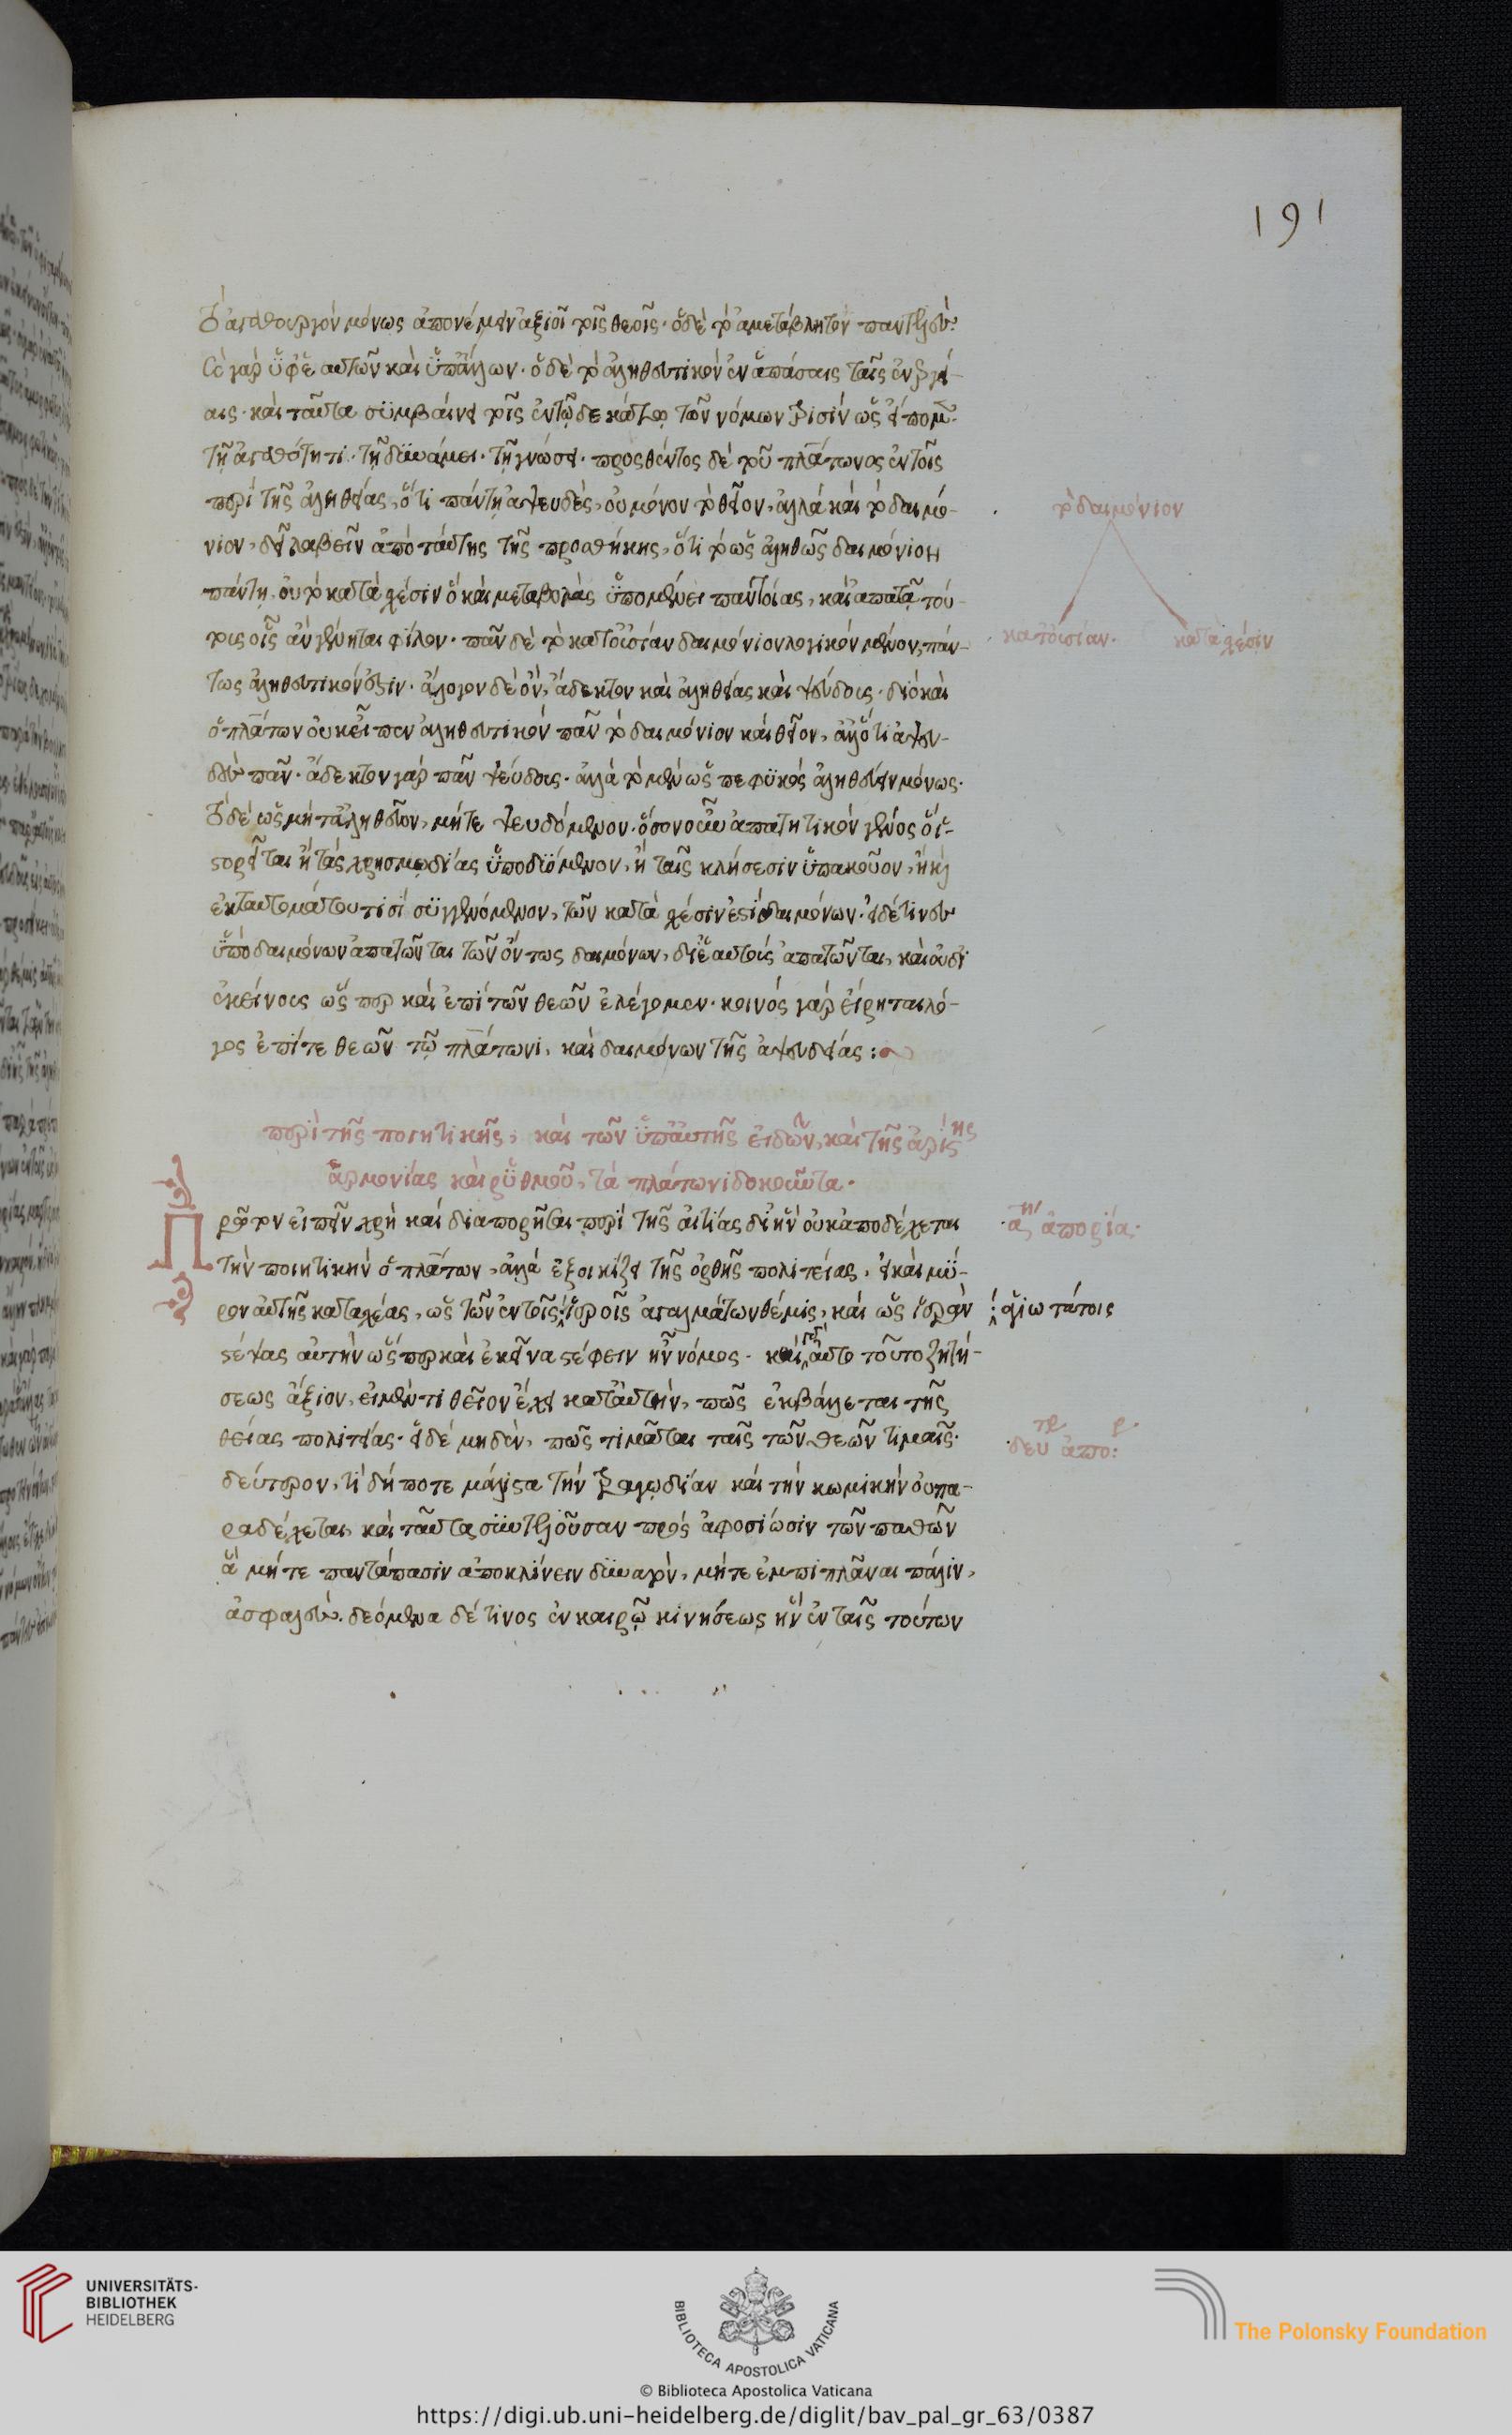 191
τὸ ἀγαθουργὸν μόνως ἀπονέμειν ἀξιοῖ τοῖς θεοῖς· ὁ δὲ τὸ ἀμετάβλητον πανταχοῦ
καὶ γὰρ ὑφ' ἑαυτῶν καὶ ὑπ' ἄλλων· ὁ δὲ τὸ ἀληθευτικὸν ἐν ἁπάσαις ταῖς ἐνεργεί-
αις· καὶ ταῦτα συμβαίνει τοῖς ἐν τῷ δεκάτῳ τῶν νόμων τρισὶν ὡς εἴπομεν
τῇ ἀγαθότητι· τῇ δυνάμει· τῇ γνώσει· προσθέντος δὲ τοῦ πλάτωνος ἐν τοῖς
περὶ τῆς ἀληθείας, ὅτι πάντῃ ἀψευδὲς, οὐ μόνον τὸ θεῖον, ἀλλὰ καὶ τὸ δαιμό-
νιον, δεῖ λαβεῖν ἀπὸ ταύτης τῆς προσθήκης, ὅτι τὸ ὡς ἀληθῶς δαιμόνιον
πάντῃ, οὐ τὸ κατὰ σχέσιν ὃ καὶ μεταβολὰς ὑπομένει παντοίας, καὶ ἀπατᾷ τού-
τους οἷς ἂν γένηται φίλον· πᾶν δὲ τὸ κατ' οὐσίαν δαιμόνιον λογικὸν μένον, πάν-
τως ἀληθευτικόν ἐστιν· ἄλογον δὲ ὂν, ἄδεκτον καὶ ἀληθείας καὶ ψεύδους· διὸ καὶ
ὁ πλάτων οὐκ εἶπεν ἀληθευτικὸν πᾶν τὸ δαιμόνιον καὶ θεῖον, ἀλλ' ὅτι ἀψευ-
δὲς πᾶν· ἄδεκτον γὰρ πᾶν ψεύδους· ἀλλὰ τὸ μὲν ὡς πεφυκὸς ἀληθεύειν μόνως·
τὸ δὲ ὡς μήτ' ἀληθεῦον, μήτε ψευδόμενον· ὅσον οὖν ἀπατητικὸν γένος ἱ-
στορεῖται ἢ τὰς χρησμῳδίας ὑποδυόμενον, ἢ ταῖς κλήσεσιν ὑπακοῦον, ἢ καὶ
ἐκ ταυτομάτου τισὶ συγγενόμενον, τῶν κατὰ σχέσιν ἐστὶ δαιμόνων· εἰ δέ τινες
ὑπὸ δαιμόνων ἀπατῶνται τῶν ὄντως δαιμόνων, δι' ἑαυτοὺς ἀπατῶνται, καὶ οὐ δι'
ἐκείνους ὥσπερ καὶ ἐπὶ τῶν θεῶν ἐλέγομεν· κοινὸς γὰρ εἴρηται λό-
γος ἐπί τε θεῶν τῷ πλάτωνι, καὶ δαιμόνων τῆς ἀψευδείας :
τὸ δαιμόνιον
κατ' οὐσίαν· κατὰ σχέσιν
περὶ τῆς ποιητικῆς, καὶ τῶν ὑπ' αὐτῆς εἰδῶν, καὶ τῆς ἀρίστης
ἁρμονίας καὶ ῥυθμοῦ, τὰ πλάτωνι δοκοῦντα·
Πρῶτον εἰπεῖν χρὴ καὶ διαπορῆσαι περὶ τῆς αἰτίας δι' ἣν οὐκ ἀποδέχεται
α ἀπορία·
τὴν ποιητικὴν ὁ πλάτων, ἀλλὰ ἐξοικίζει τῆς ὀρθῆς πολιτείας, εἰ καὶ μύ-
ρον αὐτῆς καταχέας, ὡς τῶν ἐν τοῖς ἱεροῖς ἀγαλμάτων θέμις, καὶ ὡς ἱερὰν
ἁγιωτάτοις
στέψας αὐτὴν ὥσπερ καὶ ἐκεῖνα στέφειν ἦν νόμος· καὶ γὰρ αὐτὸ τοῦτο ζητή-
σεως ἄξιον, εἰ μέν τι θεῖον ἔχει κατ' αὐτὴν, πῶς ἐκβάλλεται τῆς
θείας πολιτείας· εἰ δὲ μηδὲν, πῶς τιμᾶται ταῖς τῶν θεῶν τιμαῖς·
δευτερ απορ:
δεύτερον, τί δή ποτε μάλιστα τὴν τραγῳδίαν καὶ τὴν κωμικὴν οὐ πα-
ραδέχεται, καὶ ταῦτα συντελοῦσαν πρὸς ἀφοσίωσιν τῶν παθῶν
ἃ μήτε παντάπασιν ἀποκλίνειν δυνατὸν, μήτε ἐμπιπλάναι πάλιν,
ἀσφαλὲς· δεόμενα δέ τινος ἐν καιρῷ κινήσεως ἣν ἐν ταῖς τούτων
UNIVERSITÄTS-
BIBLIOTHEK
HEIDELBERG
BIBLIOTECA APOSTOLICA VATICANA
The Polonsky Foundation
© Biblioteca Apostolica Vaticana
https://digi.ub.uni-heidelberg.de/diglit/bav_pal_gr_63/0387